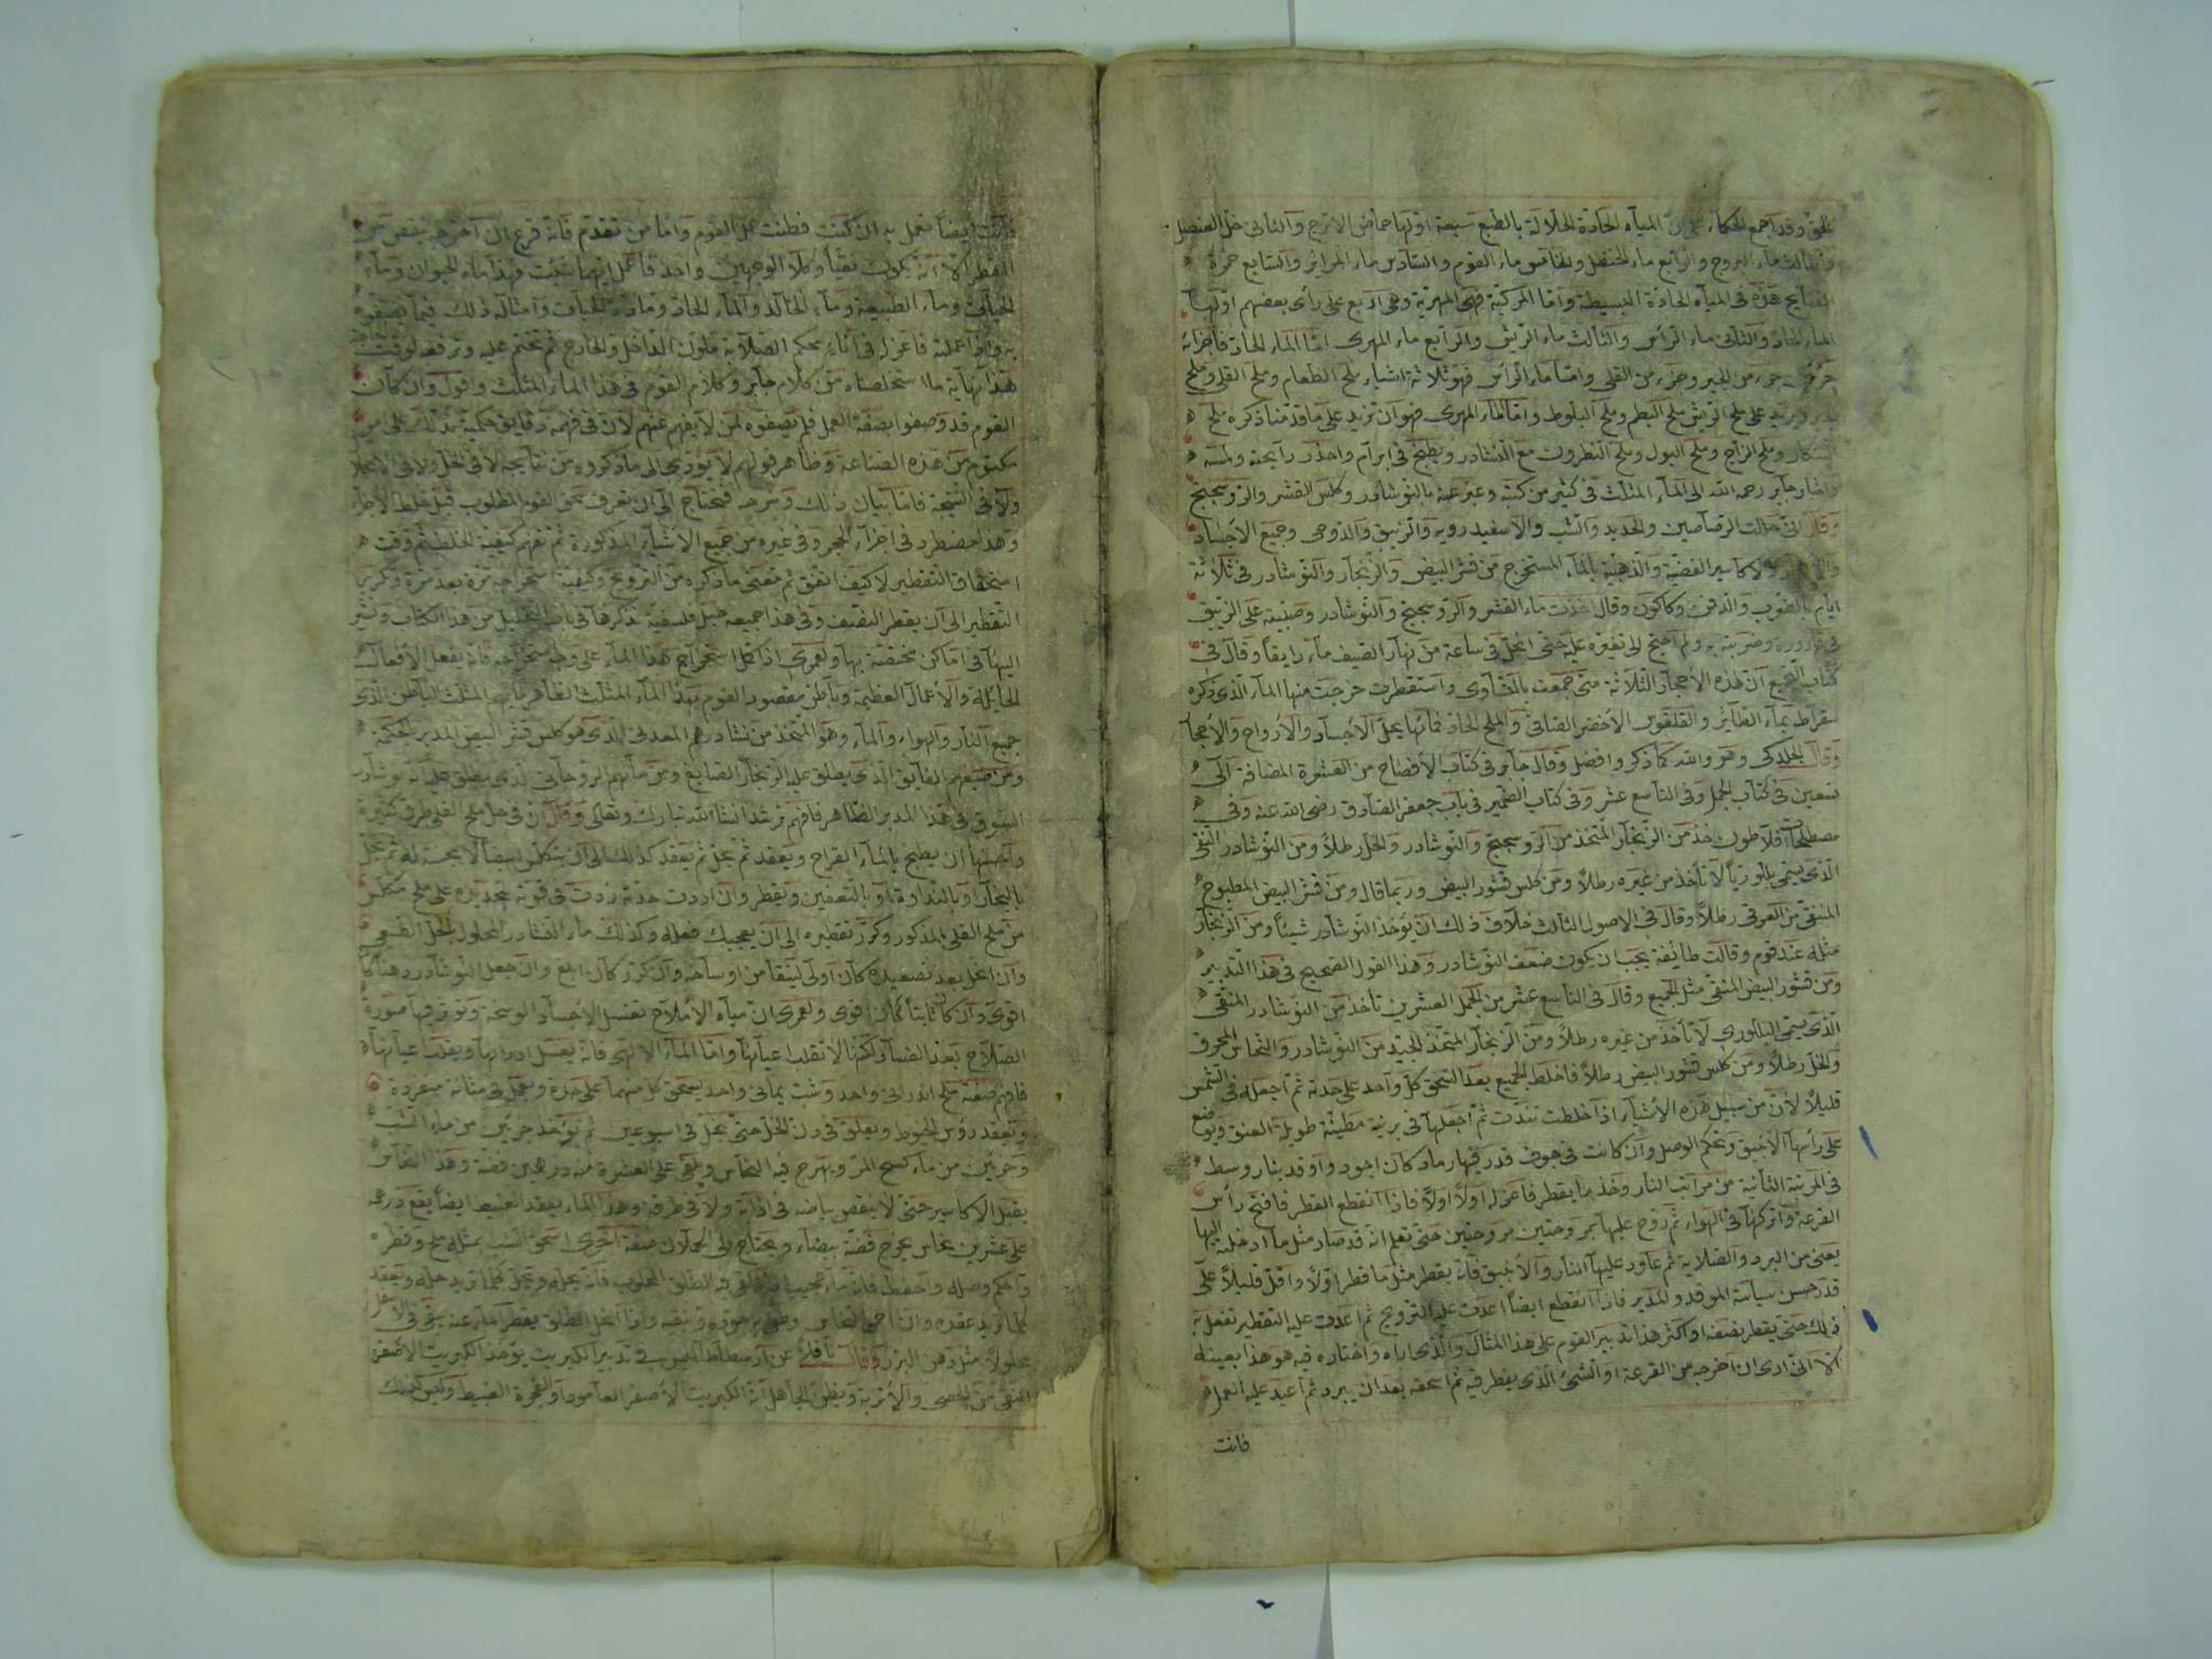 الحق وقد اجمع الحكماء على ان المياه الحادة الحلالة بالطبع سبعة اولها حماض الاترج والثانى خل العنصل
والثالث ماء والرابع ماء الحنظل والخامس ماء الثوم والسادس ماء المراير والسابع حمرة
هذه فى المياه الحادة البسيطة واما المركبة فهى المهرية وهى اربع على راى بعضهم اولها
الماء الحاد والثانى ماء الراس والثالث ماء الريش والرابع ماء المهرى اما الماء الحاد فاجزائه
جزء من الجير وجزء من القلى واما ماء الراس فهو ثلاثة اشياء ملح الطعام وملح القلى وملح
ويزيد على ملح الريش ملح البطم وملح البلوط واما الماء المهرى فهو ان تزيد على ما قدمنا ذكره ملح
وملح الزاج وملح البول وملح النطرون مع النشادر ويطبخ فى ابرام واحذر رايحته ولمسه
واشار جابر رحمه الله الى الماء المثلث فى كثير من كتبه وعبر عنه بالنوشادر وكلس القشر والروسجنج
وقال انى حللت الرصاصين والحديد والشب والاسفيدرويه والزيبق والدوص وجميع الاجساد
والاكاسير الفضية والذهبية بالماء المستخرج من قشر البيض والزنجار والنوشادر فى ثلاثة
ايام وقال اخذت ماء القشر والروسجنج والنوشادر وصببته على الزيبق
فى قارورة وضربته به ولم احتج الى تغيره عليه حتى انحل فى ساعة من نهار الصيف ماء رايقا وقال فى
كتاب التجميع ان هذه الاحجار الثلاثة متى جمعت بالتساوى واستقطرت خرجت منها الماء الذى ذكره
سقراط بماء الطاير والقلقوس الاخضر الصافى والملح الحاد فانها يحل الاجساد والارواح والاحجار
وقال الجلدكى وهو والله كما ذكر وافضل وقال جابر فى كتاب الافصاح من العشرة المضافة الى
سبعين فى كتاب الجمل وفى التاسع عشر وفى كتاب الضمير فى باب جعفر الصادق رضى الله عنه وفى
مصطلحات افلاطون خذ من الزنجار المتخذ من الروسجنج والنوشادر والخل رطلا ومن النوشادر النقى
الذى يسمى بلورياً لا تاخذ من غيره رطلا ومن كلس قشور البيض وربما قال ومن قشر البيض المطبوخ
المنقى من الغرقى رطلا وقال فى الاصول الثالث خلاف ذلك ان يوخذ النوشادر شيئا ومن الزنجار
مثله عند قوم وقالت طائفة يجب ان يكون ضعف النوشادر وهذا القول الصحيح فى هذا التدبير
ومن قشور البيض المنقى مثل الجميع وقال فى التاسع عشر من الجمل العشرين تاخذ من النوشادر المنقى
الذى يسمى البلورى لا تاخذ من غيره رطلا ومن الزنجار المتخذ الجيد من النوشادر والنحاس المحرق
والخل رطلا ومن كلس قشور البيض رطلا فاخلط الجميع بعد السحق كل واحد على حدته ثم اجعله فى الشمس
قليلا لان من سبيل هذه الاشياء اذا خلطت تندت ثم اجعلها فى برنية مطينة طويلة العنق ويوضع
على راسها الانبيق ويحكم الوصل وان كانت فى جوف قدر فيها رماد كان اجود واوقد بنار وسط
فى المرتبة الثانية من مراتب النار وخذ ما يقطر فاعزله اولا اولا فاذا انقطع القطر فافتح راس
القرعة واتركها فى الهواء ثم روح عليها بمروحتين مروحتين حتى تعلم انه قد صار مثل ما ادخلته اليها
يعنى من البرد والصلابة ثم عاود عليها النار والانبيق فانه يقطر مثل ما قطر اولا واقل قليلا على
قدر حسن سياسة الموقد والمدبر فاذا انقطع ايضا اعدت عليه الترويح ثم اعدت عليه التقطير تفعل به
ذلك حتى يقطر نصفه او اكثر هذا تدبير القوم على هذا المثال والذى اراه واختاره فيه هو هذا بعينه
الا انى ارى ان اخرجه من القرعة او الشئ الذى يقطر فيه ثم اسحقه بعد ان يبرد ثم اعيد عليه العمل
فانت
فانت ايضا تعمل به ان كنت فطنت عمل القوم واما من تقدم فانه قرع ان اخرجه ينقص من
القطر الا انه يكون نقيا وكلا الوجهين واحد فاعمل ايهما شئت فهذا ماء الحيوان وماء
الحياة وماء الطبيعة وماء الخالد والماء الحاد ومادة الحياة وامثال ذلك فيما يصفوه
به واذا عملته فاعزله فى اناء محكم الصلابة ملون الداخل والخارج ثم تختم عليه وترفعه لوقت
هذا نهاية ما استخلصناه من كلام جابر وكلام القوم فى هذا الماء المثلث واقول وان كان
القوم قد وصفوا بصفة العمل فلم تصفوه لمن لا يفهم عنهم لان فى فهمه دقايق حكمية
مكتوم من هذه الصناعة وظاهر قولهم لا يؤدى الى ما ذكروه من نتايجه لا فى الحل ولا فى
ولا فى النتيجة فاما بيان ذلك وشرحه فتحتاج الى ان تعرف القوم المطلوب قبل خلط الاجزاء
وهذا مضطرد فى اجزاء الحجر وفى غيره من جميع الاشياء المذكورة ثم تفهم كيفية الخلط ثم وقت
استحقاق التقطير لا كيف اتفق ثم معنى ما ذكره من الترويح وكيفية استخراجه مرة بعد مرة وتكرير
التقطير الى ان يقطر النصف وفى هذا جميعه حيل فلسفية نذكرها فى باب من هذا الكتاب ونشير
اليها فى اماكن مختصة بها ولعمرى اذا كمل استخراج هذا الماء على وجه استخراجه فانه يفعل الافعال
الجليلة والاعمال العظيمة وباطن مقصود القوم بهذا الماء المثلث الظاهر المثلث الباطن الذى
جميع النار والهواء والماء وهو المتخذ من نشادرهم المعدنى الذى هو كلس قشر البيض المدبر بالحكمة
ومن صبغهم الفايق الذى يطلق عليه الزنجار الصابغ ومن مائهم الروحانى الذى يطلق عليه انه نوشادر
فى هذا المدبر الظاهر فافهم ترشد انشا الله تبارك وتعالى وقال ان فى حل ملح القلى طرق كثيرة
ان يطبخ بالماء القراح ويعقد ثم يحل ثم يعقد كذلك الى ان يتكلس ابيضا لا له ثم يحل
بالبخار او بالنداوة او بالتعفين ويقطر وان اردت حدته زدت فى قوته على ملح مكلس
من ملح القلى المذكور وكرر تقطيره الى ان يعجبك فعله وكذلك ماء النشادر المحلول بالحل الطبيعى
وان انحل بعد تصعيده كان اولى لينقا من اوساخه وان كرر كان ابلغ وان جعل النوشادر دهنا كان
اقوى وان كان ثابتا كان اقوى ولعمرى ان مياه الاملاح تغسل الاجساد الوسخة وتؤثر فيها صورة
الصلاح بعد الفساد لكنها لا تقلب اعيانها واما الماء الالهى فانه يغسل ادرانها ويقلب اعيانها
فافهم صفة ملح اندرانى واحد وشب يمانى واحد يسحق كل منهما على حدة ويجعل فى مثانة مفردة
وتعقد رؤس الخيوط ويعلق فى دن الخل حتى يحل فى اسبوعين ثم يؤخذ جزئين من ماء الشب
وجزئين من ماء ملح المر ويهرج فيه النحاس ويلقى على العشرة منه درهمين فضة وهذا النحاس
يقبل الاكاسير حتى لا ينقص بياضه فى اذابة ولا فى طرقه وهذا الماء يعقد العبيط ايضا يقع درهم
على عشرين نحاس يخرج فضة بيضاء ويحتاج الى الحملان صفة اخرى اسحق الشب بمثله ملح وقطره
واحكم وصله واحفظه فانه ماء عجيب فيه الطلق المحلوب فانه يحله وتحل كلما تريد حله ويعقد
كلما تريد عقده وان احمى النحاس وينقيه واذا انحل الطلق يقطر الماء عنه يبقى فى الاسفل
محلولا مثل دهن البزر وقال ناقلا عن ارسطاطاليس فى تدبير الكبريت يؤخذ الكبريت الاصفر
المنقى من الحصى والاتربة ويظن الجاهل انه الكبريت الاصفر العامود او الفجرة العبيط وليس كذلك